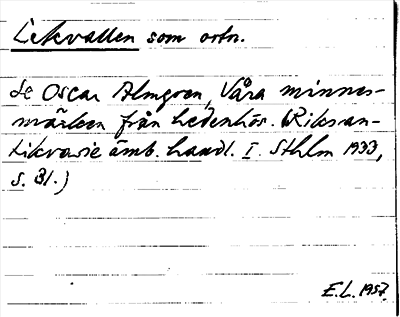 Lekvallen som ortn.
se Oscar Almgren, Våra minnes-
märken från hedenhös. (Riksan-
tikvarie ämb. handl. I. Sthlm 1933,
s. 81.)
E.L. 1957.